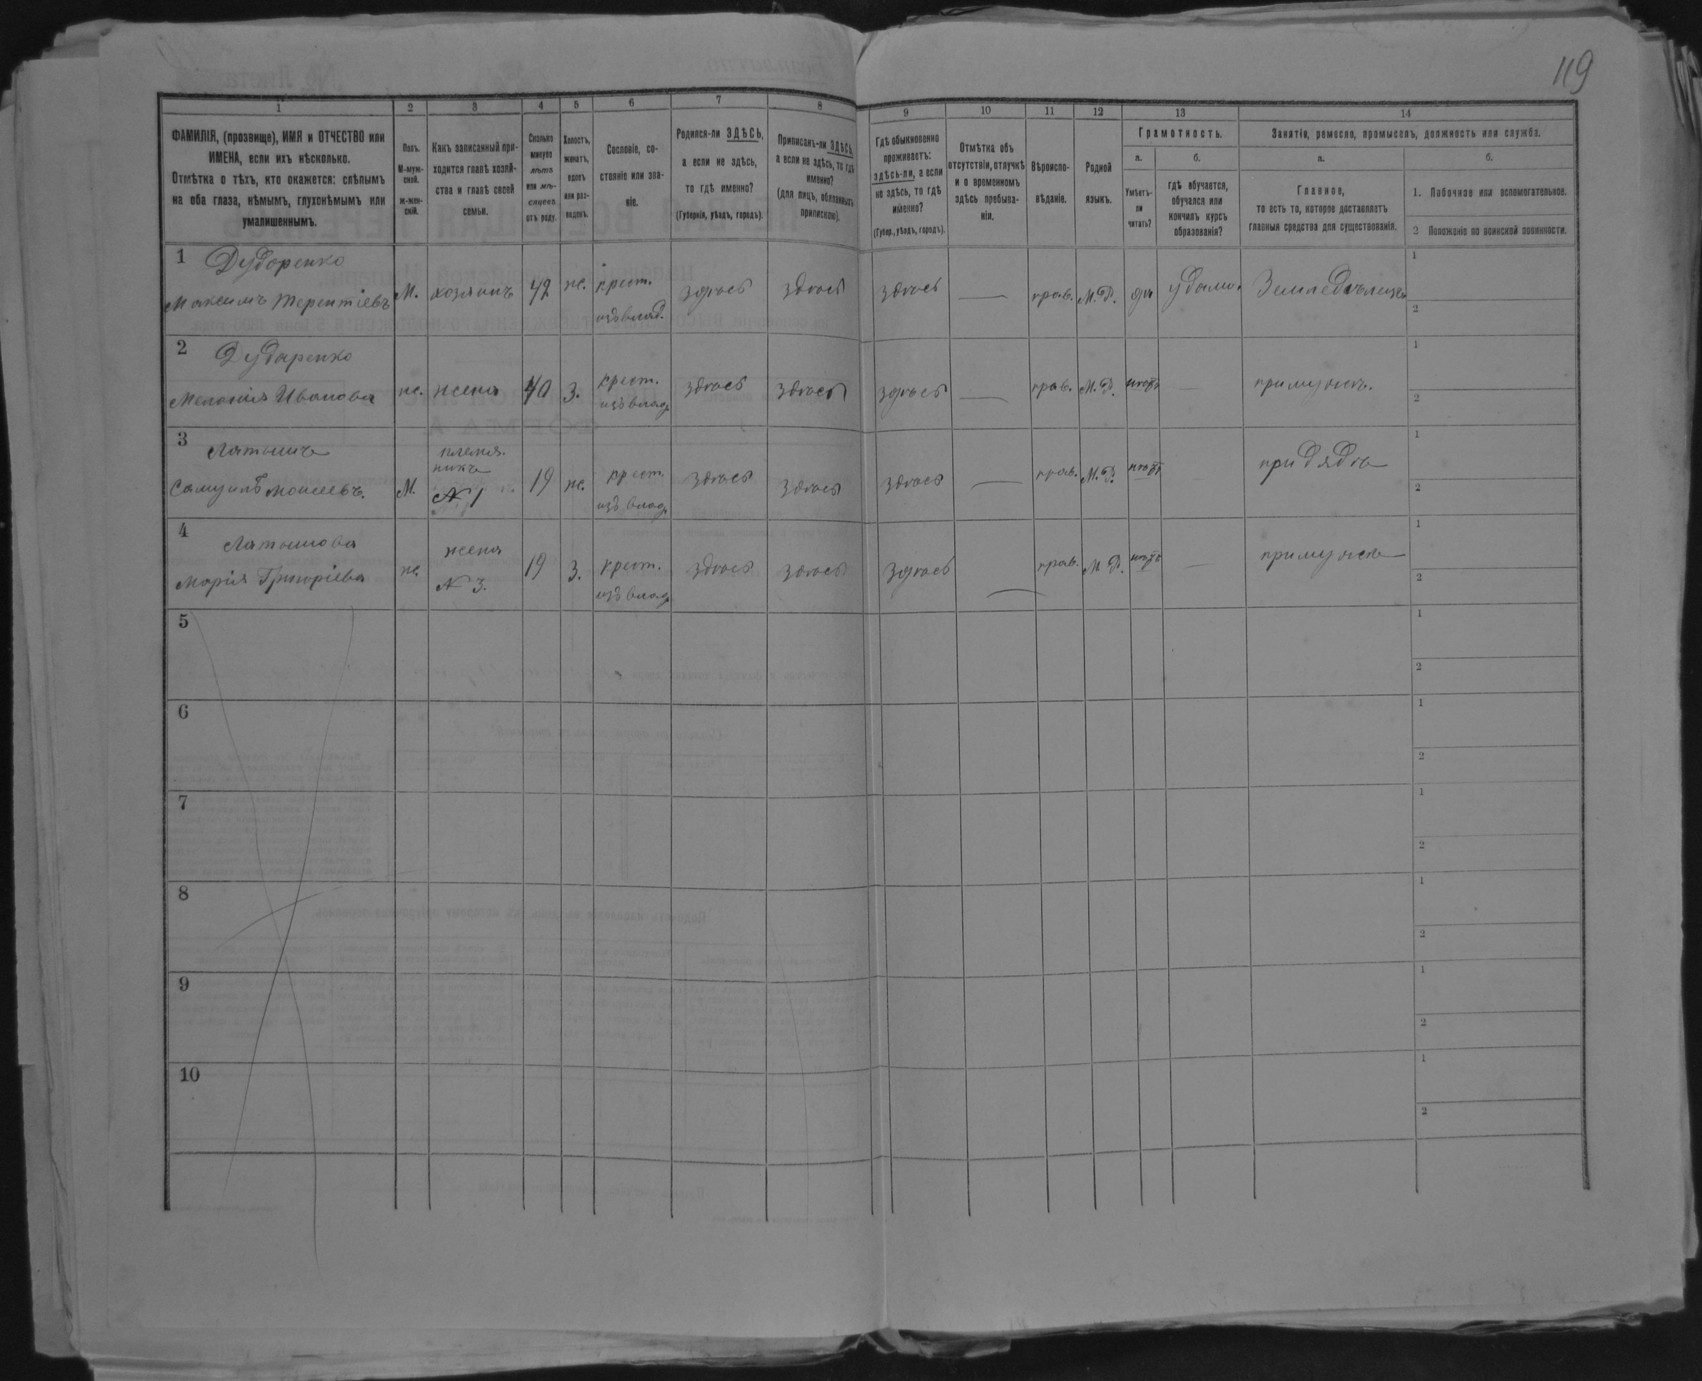 119
1 2 3 4 5 6 7 8 9 10 11 12 13 14
ФАМИЛІЯ, (прозвище), ИМЯ и ОТЧЕСТВО или
ИМЕНА, если ихъ нѣсколько.
Отмѣтка о тѣхъ, кто окажется: слѣпымъ
на оба глаза, нѣмымъ, глухонѣмымъ или
умалишеннымъ.
Полъ.
М-муж-
ской.
ж-жен-
скій.
Какъ записанный при-
ходится главѣ хозяй-
ства и главѣ своей
семьи.
Сколько
минуло
лѣтъ
или мѣ-
сяцевъ
отъ роду.
Холостъ,
женатъ,
вдовъ
или раз-
веденъ.
Сословіе, со-
стояніе или зва-
ніе.
Родился-ли ЗДѢСЬ,
а если не здѣсь,
то гдѣ именно?
(Губернія, уѣздъ, городъ).
Приписанъ-ли ЗДѢСЬ,
а если не здѣсь, то гдѣ
именно?
(для лицъ, обязанныхъ
припискою).
Гдѣ обыкновенно
проживаетъ:
здѣсь-ли, а если
не здѣсь, то гдѣ
именно?
(Губер., уѣздъ, городъ).
Отмѣтка объ
отсутствіи, отлучкѣ
и о временномъ
здѣсь пребыва-
ніи.
Вѣроиспо-
вѣданіе.
Родной
языкъ.
Грамотность.
а.
Умѣетъ-
ли
читать?
б.
гдѣ обучается,
обучался или
кончилъ курсъ
образованія?
Занятіе, ремесло, промыселъ, должность или служба.
а.
Главное,
то есть то, которое доставляетъ
главныя средства для существованія.
б.
1. Побочное или вспомогательное.
2 Положеніе по воинской повинности.
1 Дударенко
Максимъ Терентіевъ М. хозяинъ 42 же. крест.
изъ влад. здѣсь здѣсь здѣсь — прав. М. Р. да Земледѣлецъ
1
2
2 Дударенко
Меланія Иванова же. жена 40 З. крест.
изъ влад. здѣсь здѣсь здѣсь — прав. М. Р. нѣтъ — при мужѣ.
1
2
3 Латышъ
Самуилъ Моисеевъ. М. племя-
никъ
№ 1 19 же. крест.
изъ влад. здѣсь здѣсь здѣсь — прав. М. Р. нѣтъ при дядѣ
1
2
4 Латышова
Марія Григоріева же. жена
№ 3. 19 З. крест.
изъ влад. здѣсь здѣсь здѣсь — прав. М. Р. нѣтъ — при мужѣ
1
2
5
1
2
6
1
2
7
1
2
8
1
2
9
1
2
10
1
2